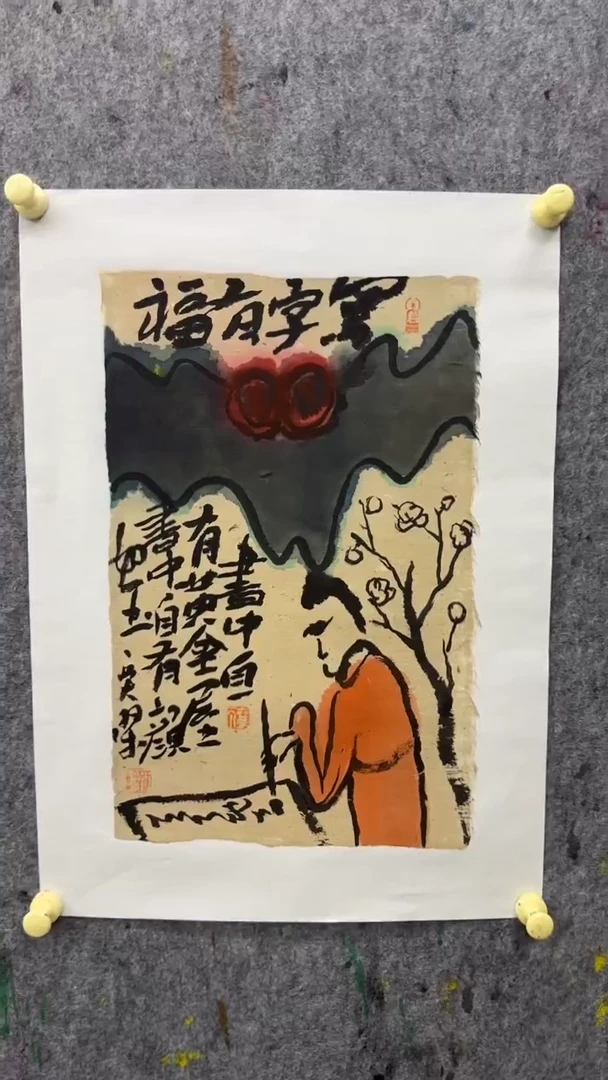 寫字有福
書中自
有黄金屋
書中自有顔
如玉